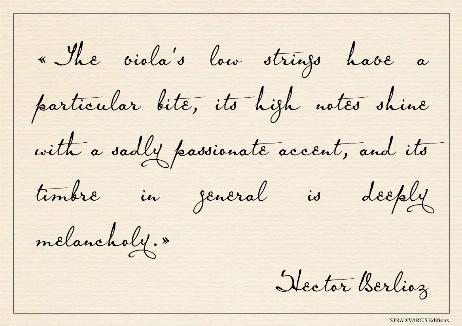 « The viola's low strings have a
particular bite, its high notes shine
with a sadly passionate accent, and its
timbre in general is deeply
melancholy. »
Hector Berlioz
STRADIVARIUS Editions